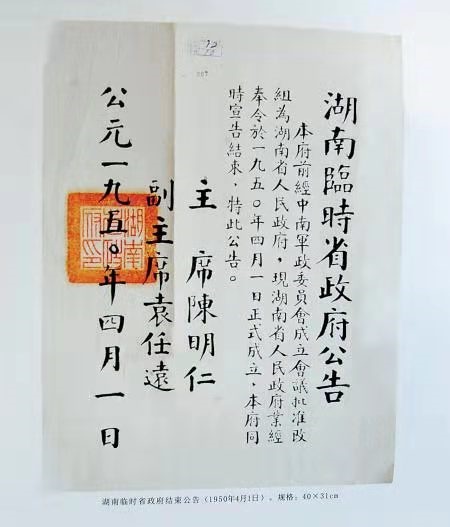 湖南臨時省政府公告
本府前經中南軍政委員會成立會議批准改
組為湖南省人民政府，現湖南省人民政府業經
奉令於一九五〇年四月一日正式成立，本府同
時宣告結束，特此公告。
主席陳明仁
副主席袁任遠
公元一九五〇年四月一日
湖南临时省政府结束公告（1950年4月1日）。规格：40×31cm